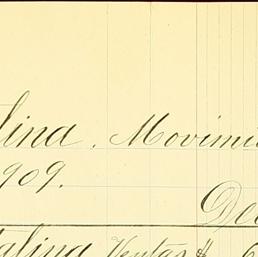 lina. Movimi
909.
De
talina Ventas #